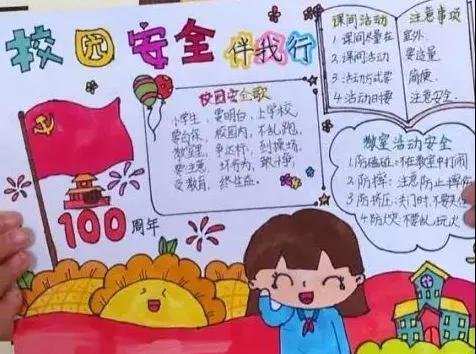 校园安全伴我行
校园安全歌
小学生，要明白，上学校，
要自保，校园内，不乱跑，
教室里，争达标，到操场，
要注意，坏行为，敢斗争，
受教育，终生益。
100周年
课间活动 注意事项
1.课间尽量在室外。
2.课间活动要适量
3.活动方式要简便.
4.活动时要注意安全.
教室活动安全
1.防磕碰:不在教室中打闹
2.防摔:注意防止摔
3.防挤压:关门时,不要
4.防火:不要乱玩火